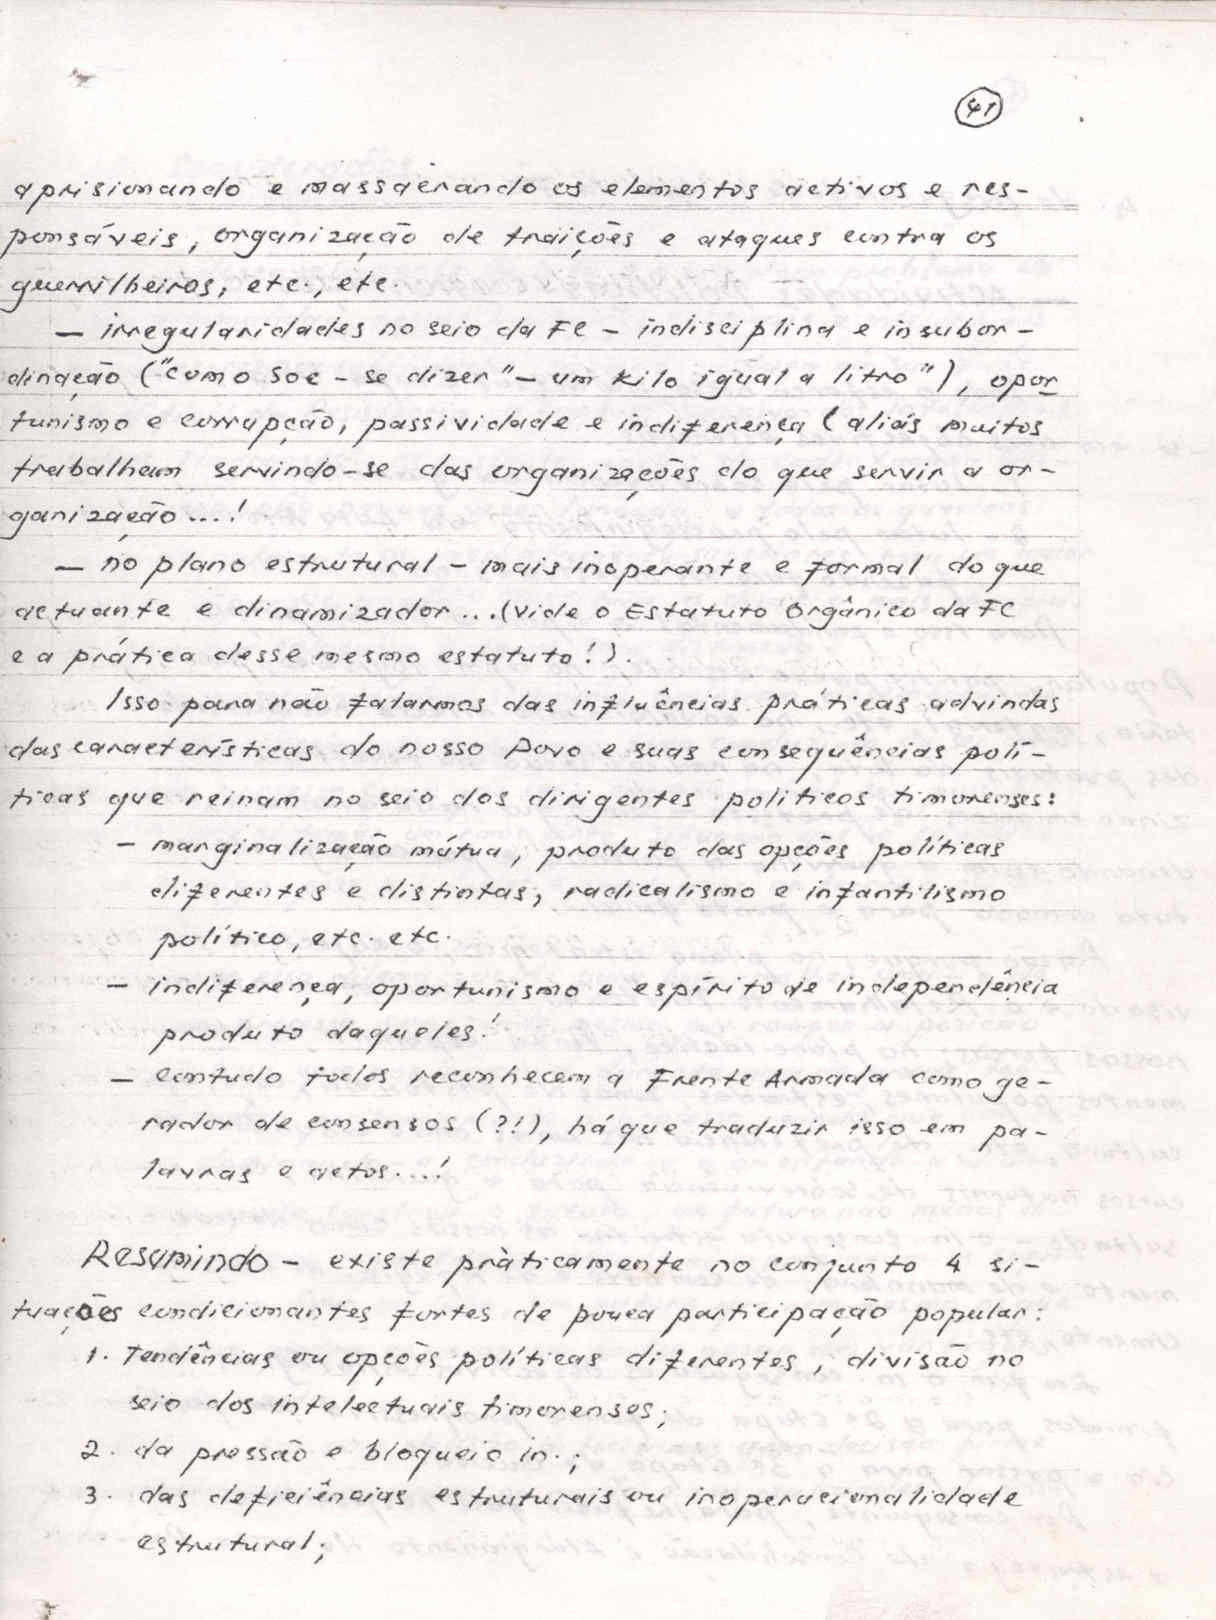 41
aprisionando e massacrando os elementos activos e res-
ponsáveis, organização de traições e ataques contra os
guerrilheiros, etc., etc.
— irregularidades no seio da FC - indisciplina e insubor-
dinação ("como soe - se dizer" - um kilo igual a litro"), opor
tunismo e corrupção, passividade e indiferença (aliás muitos
trabalham servindo-se das organizações do que servir a or-
ganização...!
— no plano estrutural - mais inoperante e formal do que
actuante e dinamizador...(vide o Estatuto Orgânico da FC
e a prática desse mesmo estatuto!).
Isso para não falarmos das influências práticas advindas
das características do nosso Povo e suas consequências polí-
ticas que reinam no seio dos dirigentes politicos timorenses:
- marginalização mútua, produto das opções políticas
diferentes e distintas, radicalismo e infantilismo
político, etc. etc.
- indiferença, oportunismo e espírito de independência
produto daqueles!
- contudo todos reconhecem a Frente Armada como ge-
rador de consensos (?!), há que traduzir isso em pa-
lavras e actos...!
Resumindo - existe pràticamente no conjunto 4 si-
tuações condicionantes fortes de pouca participação popular:
1. Tendências ou opções políticas diferentes, divisão no
seio dos intelectuais timorenses;
2. da pressão e bloqueio in.;
3. das deficiências estruturais ou inoperacionalidade
estrutural;